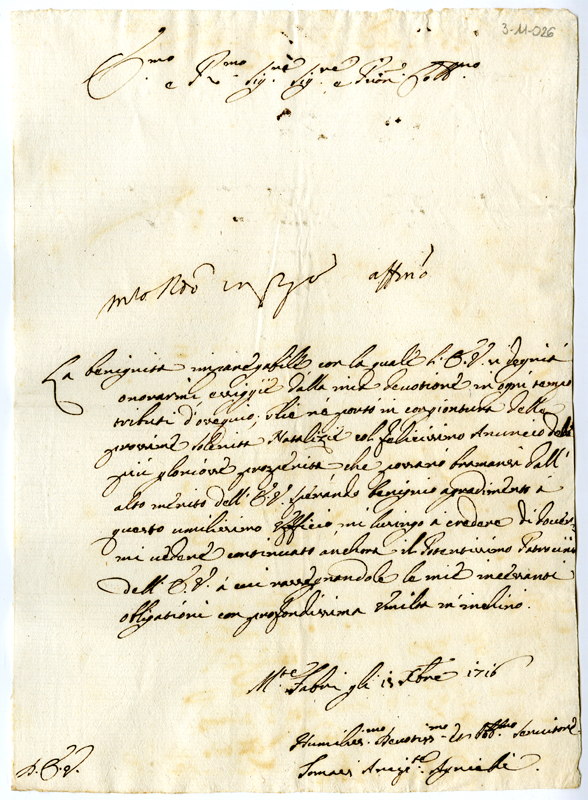 3-11-026
E.mo
e R.mo Sig.re Sig.re e Pron.e Coll.mo
La benignità impareggiabile con la quale l'E.V. si degna
onorarmi esiggie dalla mia devotione in ogni tempo
tributi d'ossequio, che ne porto in congiontura delle
prossime solenità Natalizie col felicissimo Anuncio delle
più gloriose prosperità che possano bramarsi dall'
alto merito dell'E.V. sperando benignio agradimento à
questo umilissimo Ufficio, mi lusingo à credere di dover-
mi vedere continuato anchora il Potentissimo Patrocinio
dell'E.V. à cui rassegnandole le mie incessanti
obligationi con profondissima umiltà m'inchino.
M.te Fabri gli 15 Xbre 1716
Humiliss.mo Devotiss.mo et Obb.mo Servitore
D. E. V.